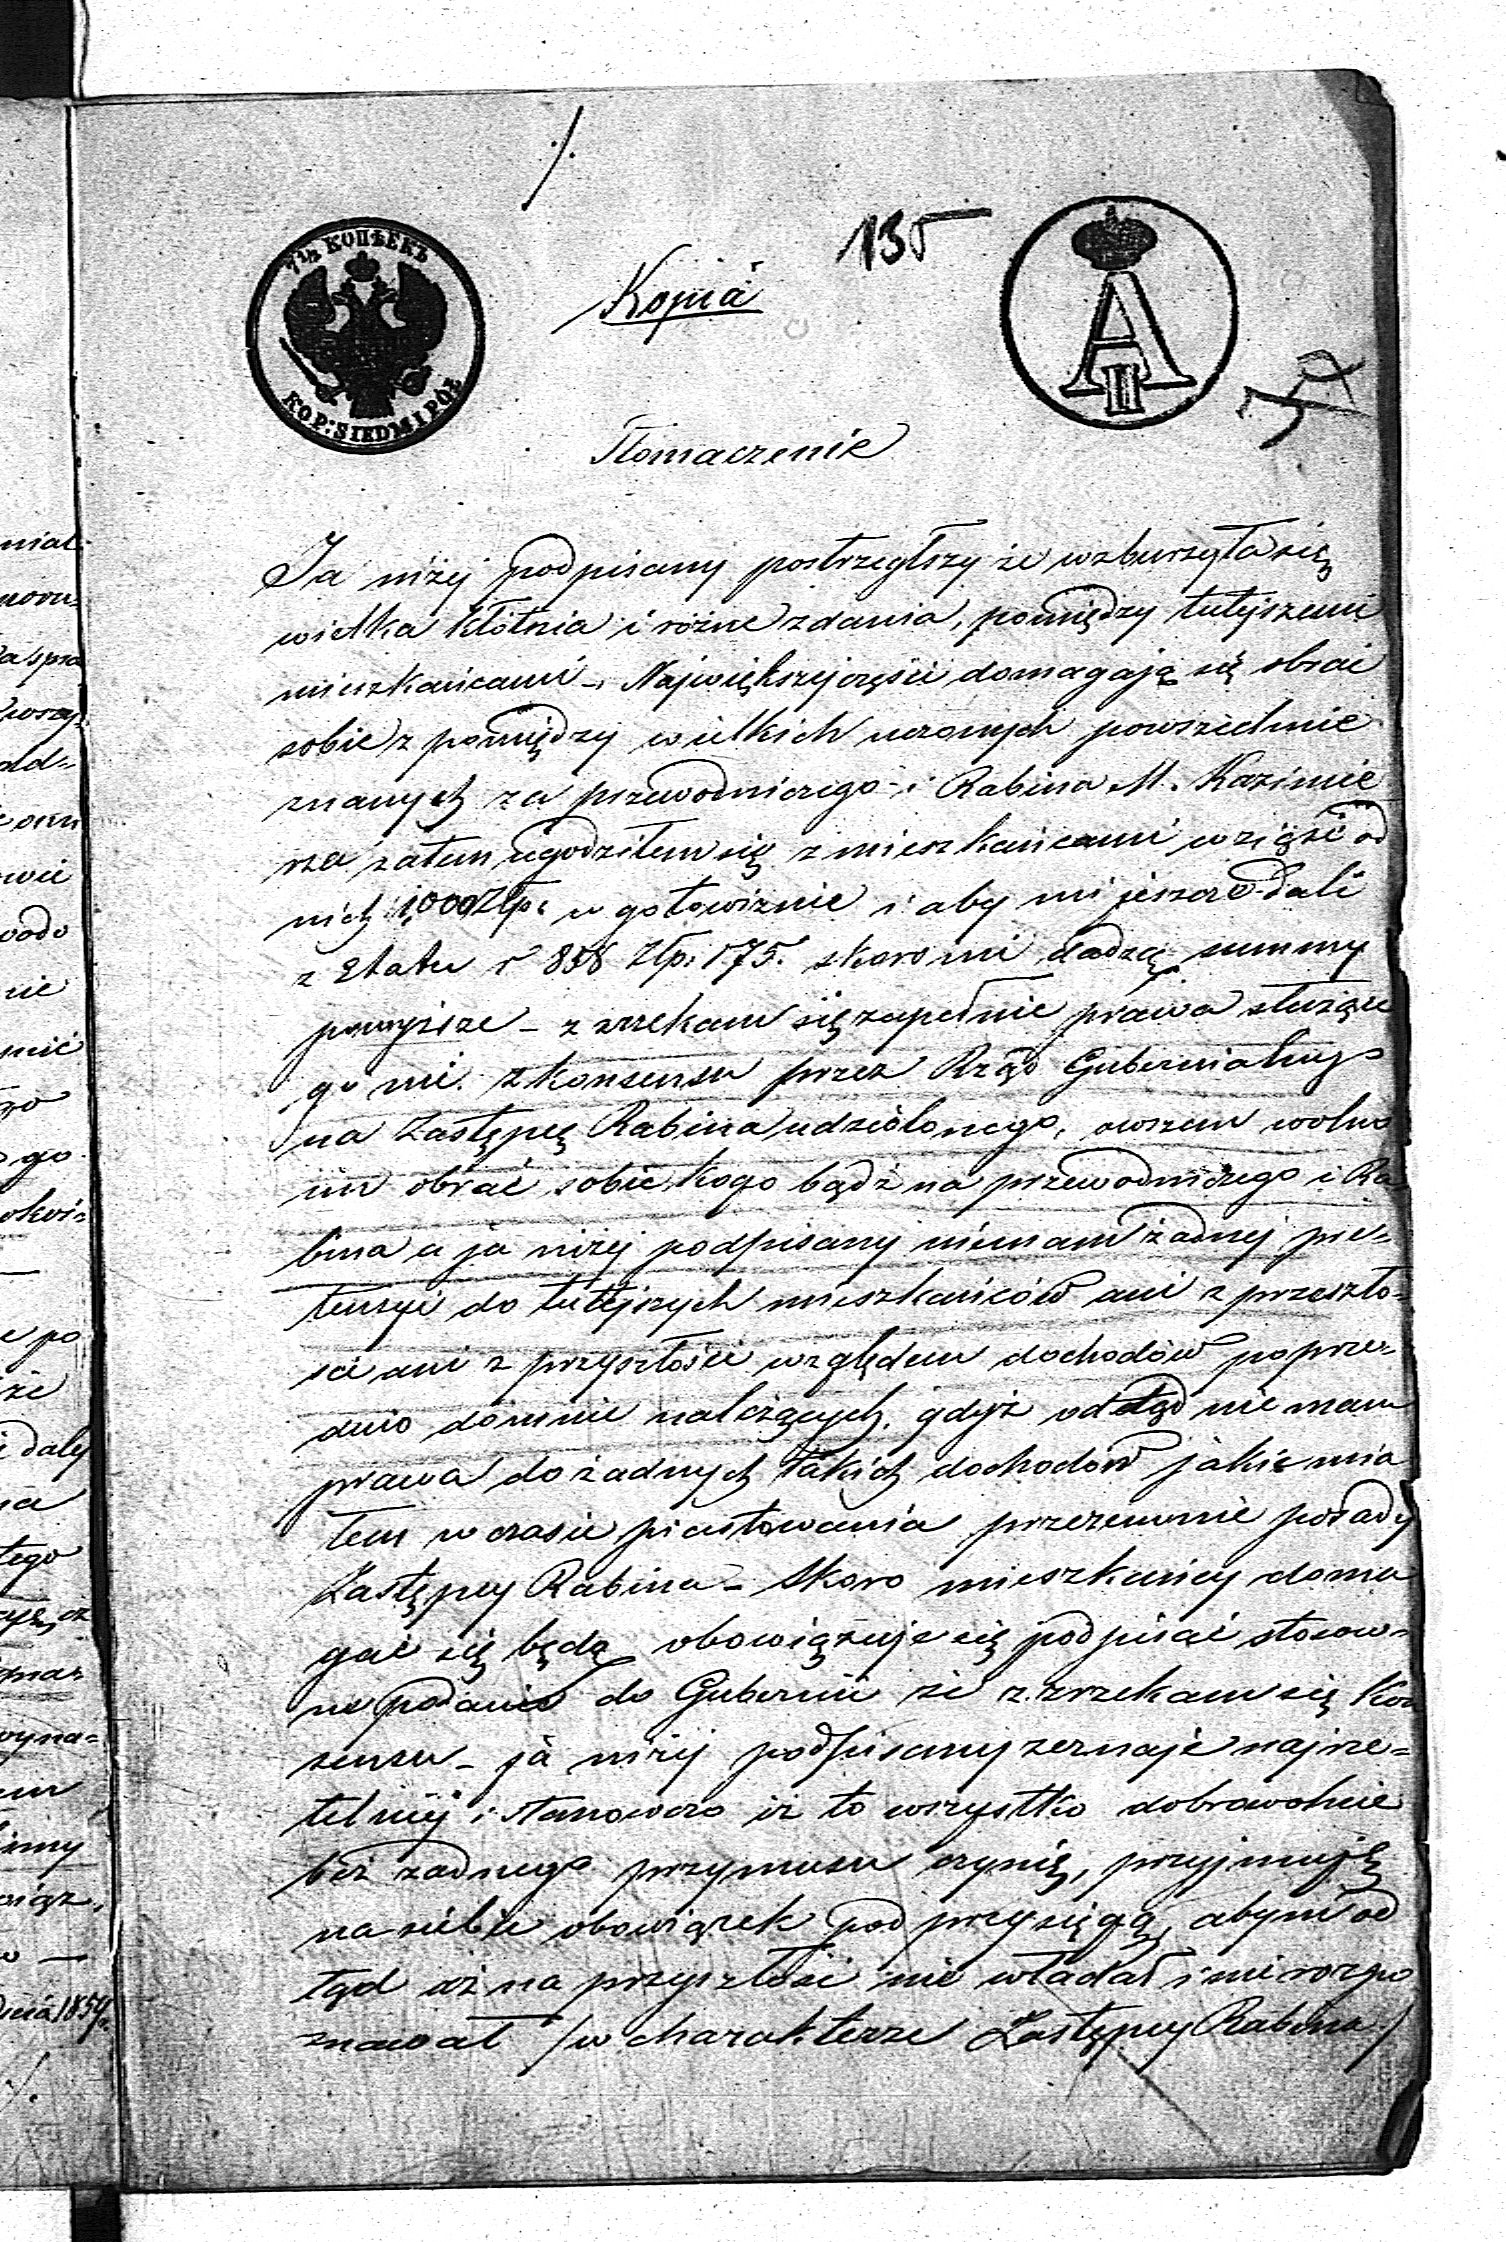 7½ КОПѢЕКЪ
KOP: SIEDM I PÓŁ
Kopia
135
A II
Tłomaczenie
Ja niżej podpisany postrzegłszy że wzburzyła się
wielka kłótnia i różne zdania, pomiędzy tutejszemi
mieszkańcami -, Największej części domagają się obrać
sobie z pomiędzy wielkich uczonych powszechnie
znanych za przewodniczego i Rabina M. Kazimie
rza zatem ugodziłem się z mieszkańcami wziąść od
nich 1,000 Złp. w gotowiźnie i aby mi jeszcze dali
z Etatu r 858 Złp. 175. skoro mi dadzą summy
powyższe - zrzekam się zupełnie prawa służące
go mi z konsensu przez Rząd Gubernialny
na Zastępcę Rabina udzielonego, owszem wolno
im obrać sobie kogo bądź na przewodniczego i Ra
bina a ja niżej podpisany niemam żadnej pre-
tensyi do tutejszych mieszkańców ani z przeszło-
ści ani z przyszłości względem dochodów poprze-
dnio do mnie należących, gdyż odtąd nie mam
prawa do żadnych takich dochodów jakie mia
łem w czasie piastowania przezemnie posady
Zastępcy Rabina - Skoro mieszkańcy doma
gać się będą obowiązuje się podpisać stosow-
ne podanie do Gubernii że zrzekam się Kon
sensu - ja niżej podpisany zeznaje najrze-
telniej i stanowczo iż to wszystko dobrowolnie
bez żadnego przymusu czynię, przyjmuję
na siebie obowiązek pod przysięgą, abym od
tąd iż na przyszłość nie władał i nie rozpo
znawał /w charakterze Zastępcy Rabina/